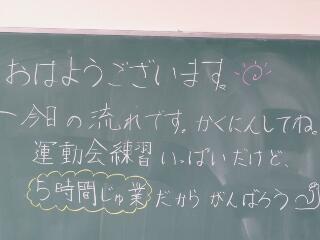 おはようございます。
今日の流れです。かくにんしてね。
運動会練習いっぱいだけど、
5時間じゅ業だからがんばろう